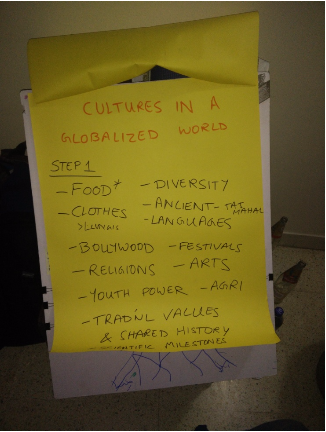 CULTURES IN A
GLOBALIZED WORLD
STEP 1
- FOOD* - DIVERSITY
- CLOTHES - ANCIENT - TAJ MAHAL
- LANGUAGES
- BOLLYWOOD - FESTIVALS
- RELIGIONS - ARTS
- YOUTH POWER - AGRI
- TRADNL VALUES
& SHARED HISTORY
MILESTONES